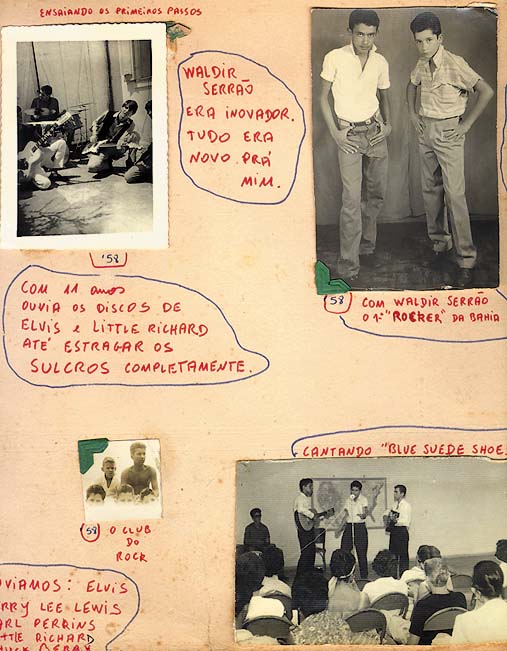 ENSAIANDO OS PRIMEIROS PASSOS
WALDIR
SERRÃO
ERA INOVADOR.
TUDO ERA
NOVO PRÁ
MIM.
'58
COM 11 anos
OUVIA OS DISCOS DE
ELVIS e LITTLE RICHARD
ATÉ ESTRAGAR OS
SULCROS COMPLETAMENTE.
58 COM WALDIR SERRÃO
O 1º "ROCKER" DA BAHIA
58 O CLUB
DO
ROCK
CANTANDO "BLUE SUEDE SHOE
OUVIAMOS: ELVIS
RRY LEE LEWIS
ARL PERKINS
TTLE RICHARD
HUCK BERRY